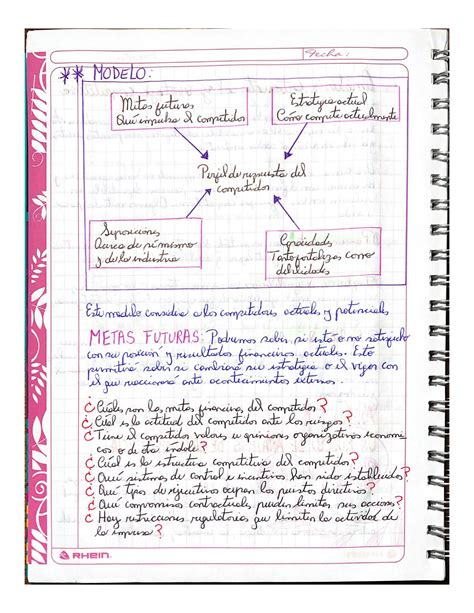 Fecha:
** MODELO:
Metas futuras
Qué impulsa el competidor
Estrategia actual
Cómo compite actualmente
Perfil de respuesta del
competidor
Suposiciones
Acerca de si mismo
y de la industria
Capacidades
Tanto fortalezas como
debilidades
Este modelo considera a los competidores actuales y potenciales
METAS FUTURAS: Podremos saber si está o no satisfecho
con su posición y resultados financieros actuales. Esto
permitirá saber si cambiará su estrategia o el vigor con
el que reaccionará ante acontecimientos externos.
¿Cuáles son las metas financieras del competidor?
¿Cuál es la actitud del competidor ante los riesgos?
¿Tiene el competidor valores u opiniones organizativos económi
cos o de otra índole?
¿Cuál es la estructura competitiva del competidor?
¿Qué sistemas de control e incentivos han sido establecidos?
¿Qué tipos de ejecutivos ocupan los puestos directivos?
¿Qué compromisos contractuales pueden limitar sus acciones?
¿Hay restricciones regulatorias que limiten la actividad de
la empresa?
RHEIN